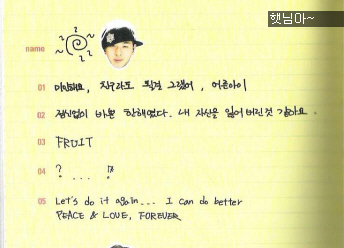 햇님아~
name
01 미안해요, 친구라도 될걸 그랬어, 어른아이
02 정신없이 바쁜 한해였다. 내 자신을 잃어버린것 같아요
03 FRUIT
04 ? ... !?
05 Let's do it again... I can do better
PEACE & LOVE, FOREVER